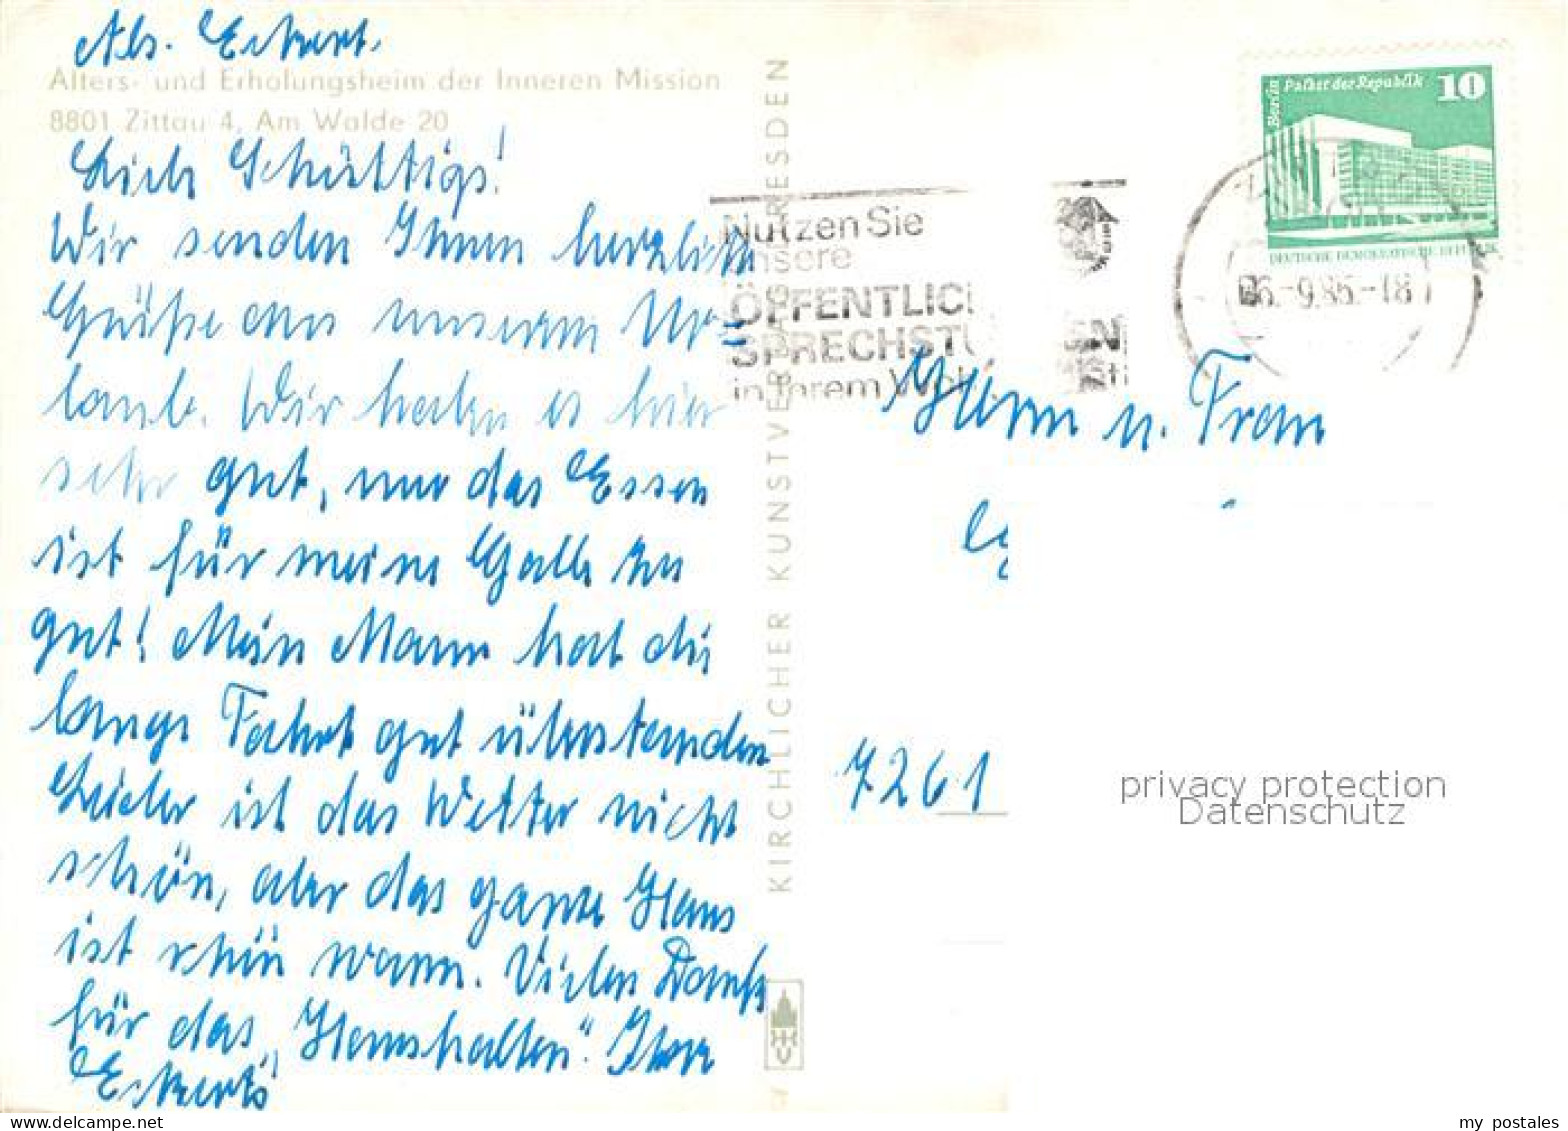 Abs. Eckert.
Alters- und Erholungsheim der Inneren Mission
8801 Zittau 4, Am Walde 20
Liebe Schüttigs!
Wir senden Ihnen herzliche
Grüße aus unserem Ur=
laub. Wir haben es hier
sehr gut, nur das Essen
ist für meine Galle zu
gut! Mein Mann hat die
lange Fahrt gut überstanden
Leider ist das Wetter nicht
schön, aber das ganze Haus
ist schön warm. Vielen Dank
für das „Haushalten". Ihre
Eckerts
KIRCHLICHER KUNSTVERLAG DRESDEN
Nutzen Sie
unsere
ÖFFENTLIC
SPRECHST EN
in Ihrem Woh
Berlin Palast der Republik 10
DEUTSCHE DEMOKRATISCHE REPUBLIK
06.-9.86.-18
Herrn u. Frau
7261
privacy protection
Datenschutz
my postales